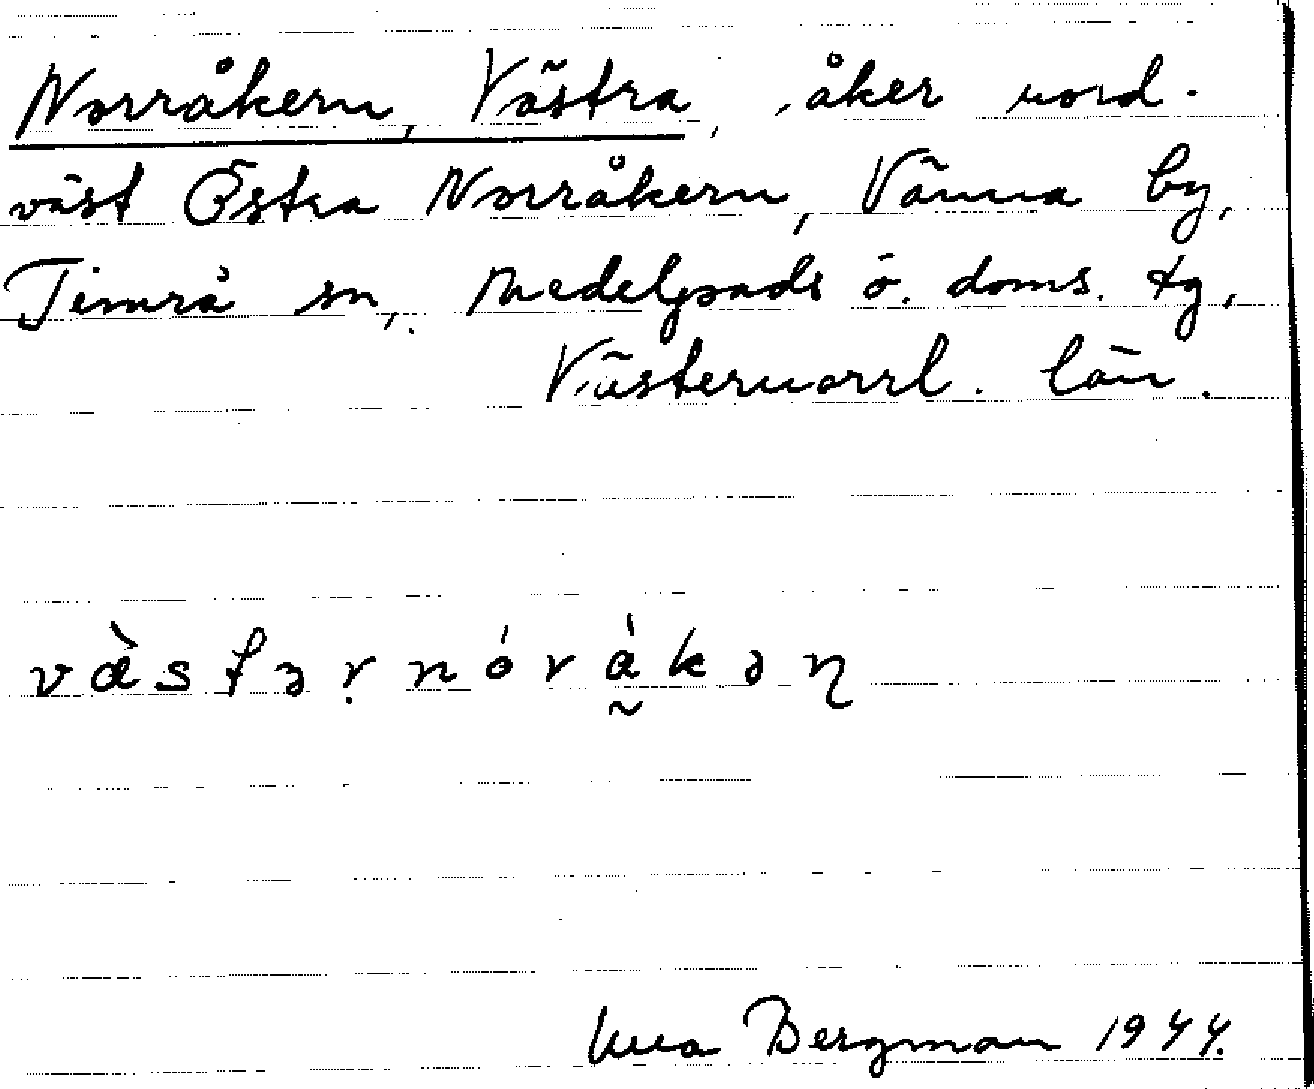 Norråkern, Västra, åker nord-
väst Östra Norråkern, Vänna by,
Timrå sn, Medelpads ö. doms. tg,
Västernorrl. län.
vàstəṛnórá̰kəɳ
Bergman 1944.